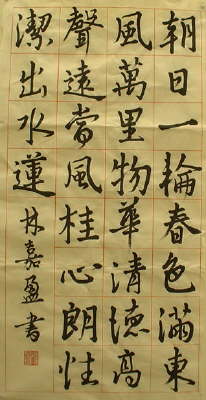 朝日一輪春色滿東
風萬里物華清德高
聲遠當風桂心朗性
潔出水蓮
林嘉盈書